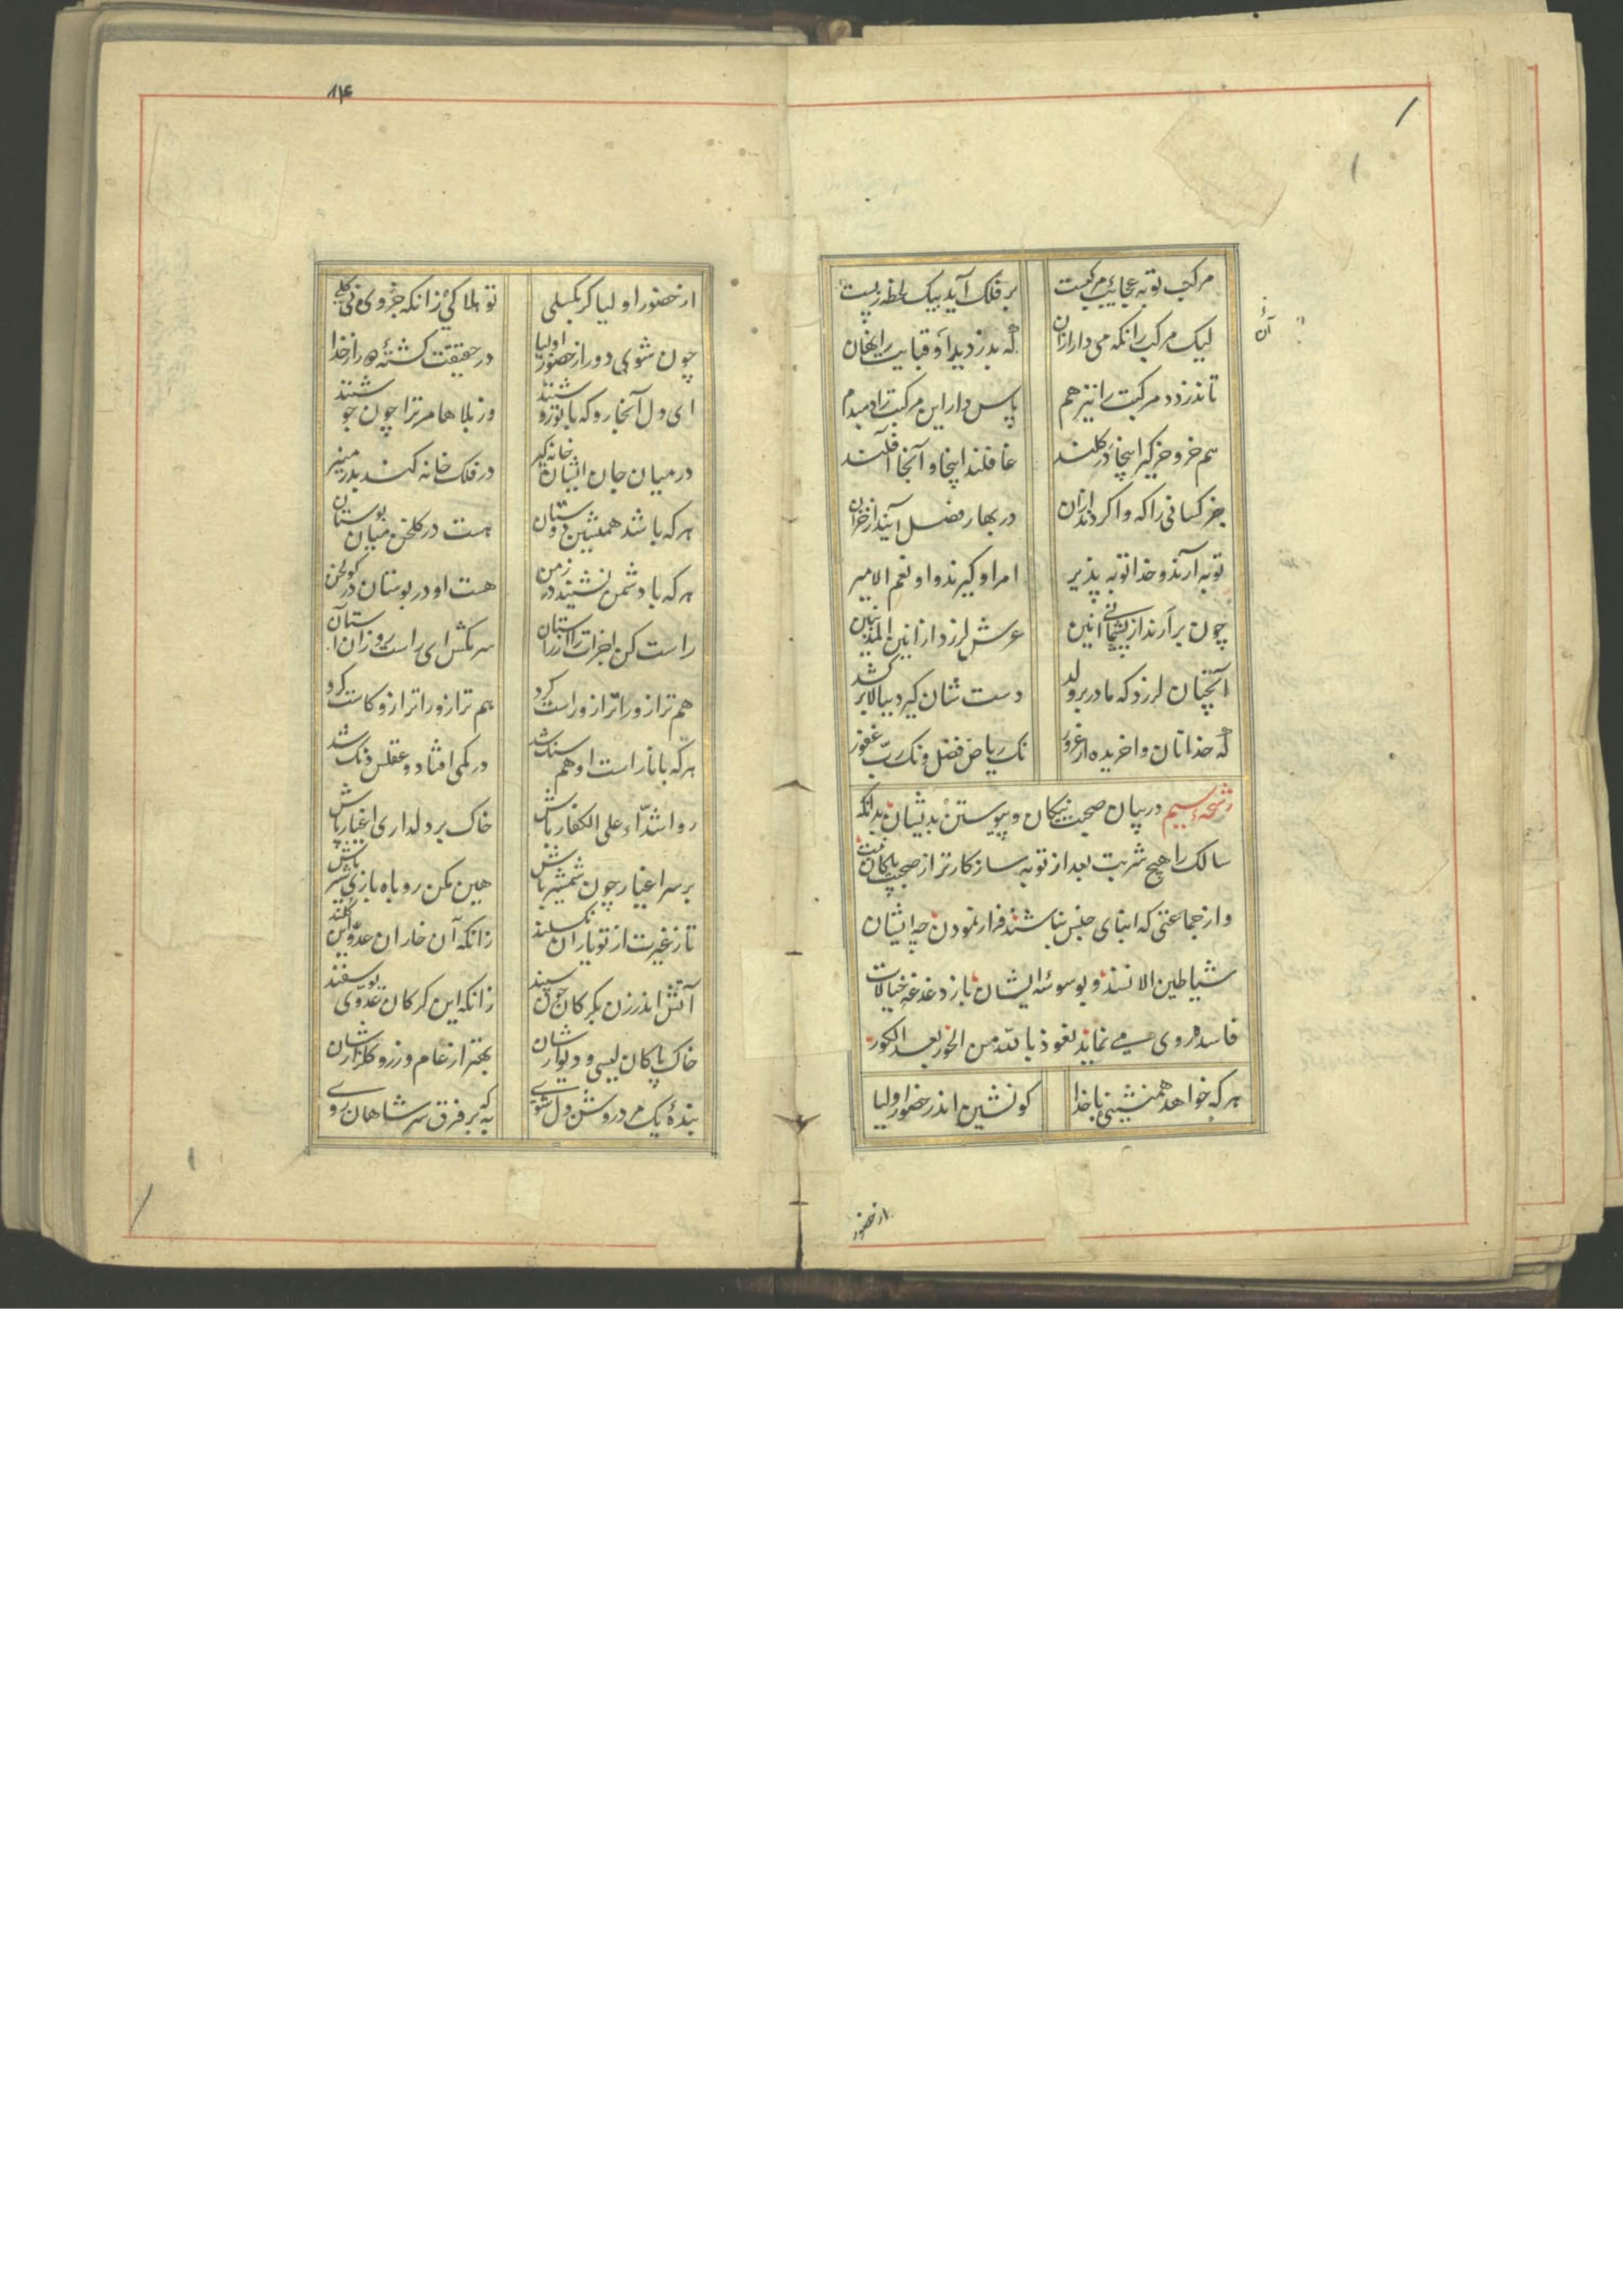 مرکب توبه عجایب مرکبست بر فلک آید بیک لحظه ز پست
لیک مرکب را نگه می دار ازان که بدزدید او قبایت را نهان
تا ندزدد مرکبت را نیز هم پاس دار این مرکبت را دمبدم
هم خر و خر گیر اینجا در گلند غافلند اینجا و آنجا آفلند
جز کسانی را که وا گردند ازان در بهار فضل آیند از خزان
توبه آرند و خدا توبه پذیر امر او گیرند و او نعم الامیر
چون برآرند از پشیمانی انین عرش لرزد از انین المذنبین
آنچنان لرزد که مادر بر ولد دست شان گیرد ببالا بر کشد
که خداتان وا خریده از غرور نک ریاض فضل و نک رب غفور
رشحه سیم در بیان صحبت نیکان و پیوستن بدیشان بدانکه
سالک را هیچ شربت بعد از توبه سازکارتر از صحبت پاکان نیست
و از جماعتی که ابنای جنس نباشند فرار نمودن چه ایشان
شیاطین الانسند و بوسوسهٔ ایشان باز دغدغه خیالات
فاسده روی می نماید نعوذ بالله من الحور بعد الکور
هر که خواهد همنشینی با خدا کو نشین اندر حضور اولیا
از حضور
۱۴
از حضور اولیا گر بگسلی تو هلاکی زانکه جزوی نی کلی
چون شوی دور از حضور اولیا در حقیقت گشتهٔ دور از خدا
ای دل آنجا رو که با تو رو شنند وز بلاها مر ترا چون جوشنند
در میان جان ایشان خانه گیر در فلک خانه کند بدر منیر
هر که باشد همنشین دوستان هست در گلخن میان بوستان
هر که با دشمن نشیند در زمن هست او در بوستان در گولخن
راست کن اجزات را از راستان سر مکش ای راست رو زان آستان
هم ترازو را ترازو راست کرد هم ترازو را ترازو کاست کرد
هر که با ناراست او هم سنگ شد در کمی افتاد و عقلش دنگ شد
رو اشداء علی الکفار باش خاک بر دلداری اغیار پاش
بر سر اغیار چون شمشیر باش هین مکن روباه بازی شیر باش
تا ز غیرت از تو یاران نگسلند زانکه آن خاران عدو این گلند
آتش اندر زن بگرگان چون سپند زانکه این گرگان عدوی یوسفند
خاک پاکان لیسی و دیوار شان بهتر از عام و رز و گلزار شان
بندهٔ یک مرد روشن دل شوی به که بر فرق سر شاهان روی